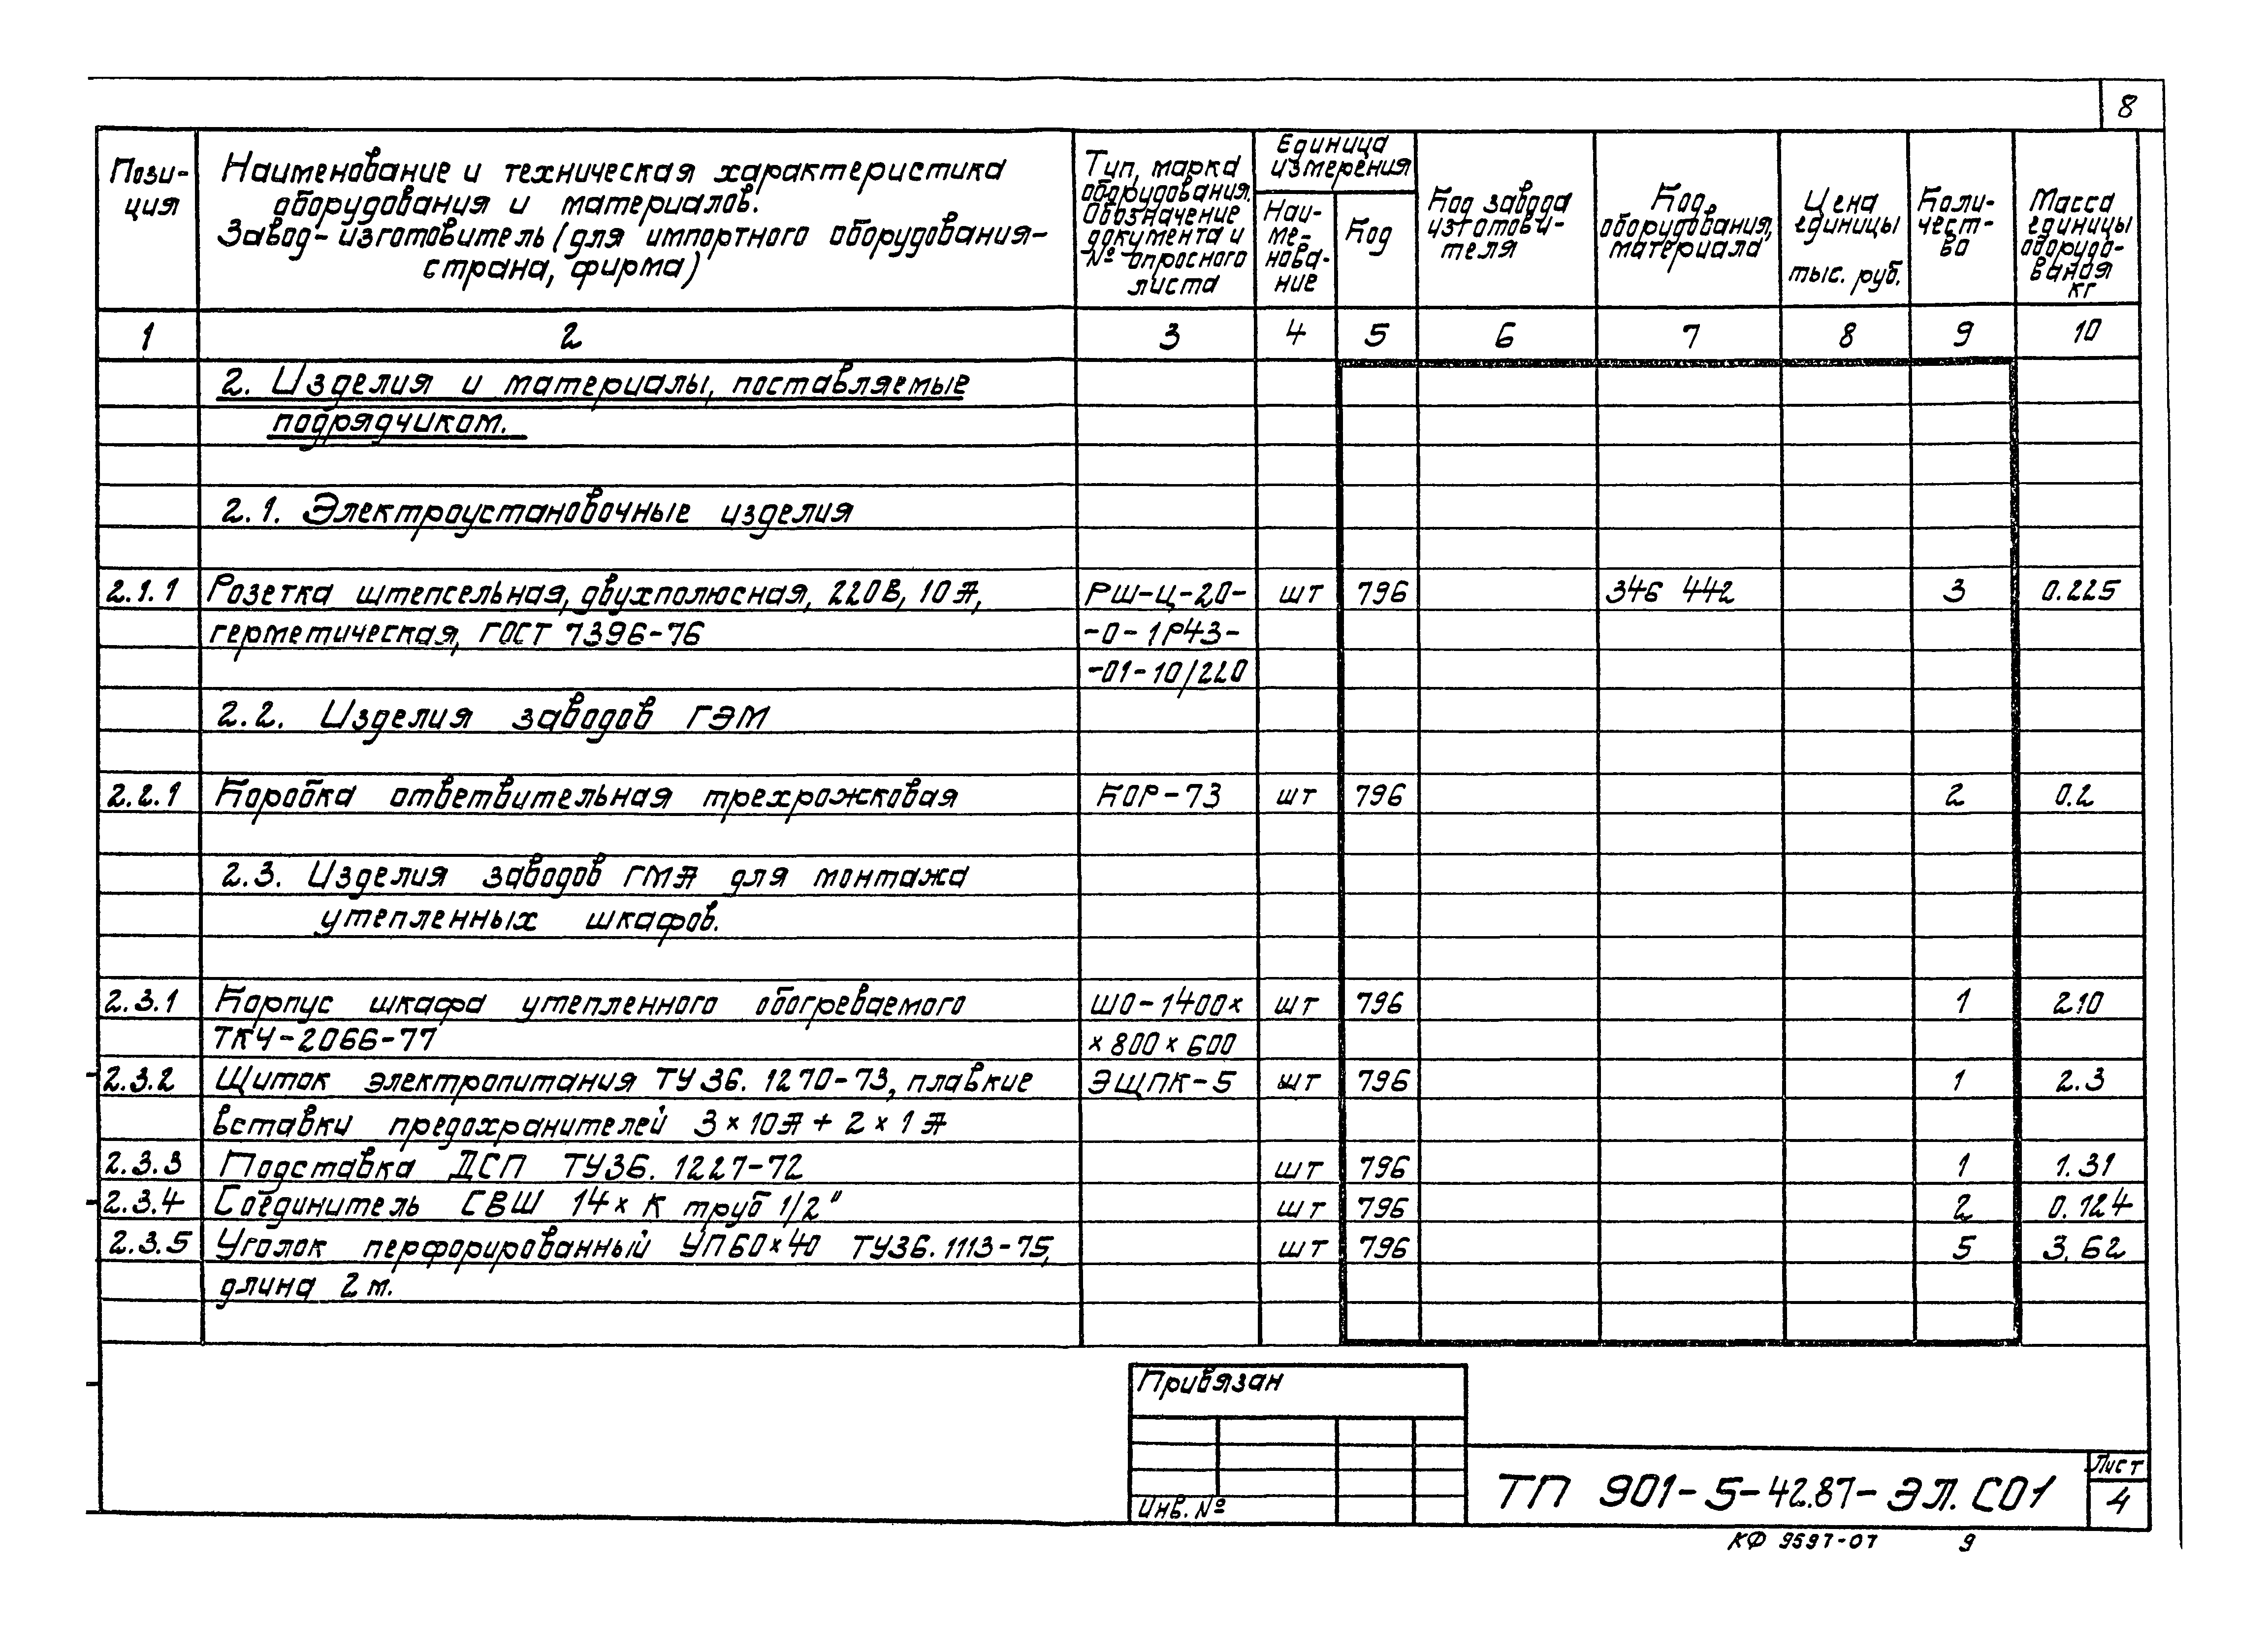 8
Пози-
ция
Наименование и техническая характеристика
оборудования и материалов.
Завод-изготовитель (для импортного оборудования-
страна, фирма)
Тип, марка
оборудования.
Обозначение
документа и
№ опросного
листа
Единица
измерения
Наи-
ме-
нова-
ние
Код
Код завода
изготови-
теля
Код
оборудования,
материала
Цена
единицы
тыс. руб.
Коли-
чест-
во
Масса
единицы
оборудо-
вания
кг
1 2 3 4 5 6 7 8 9 10
2. Изделия и материалы, поставляемые
подрядчиком.
2.1. Электроустановочные изделия
2.1.1 Розетка штепсельная, двухполюсная, 220В, 10А, РШ-Ц-20- шт 796 346 442 3 0.225
герметическая, ГОСТ 7396-76 -0-1Р43-
-01-10/220
2.2. Изделия заводов ГЭМ
2.2.1 Коробка ответвительная трехрожковая КОР-73 шт 796 2 0.2
2.3. Изделия заводов ГМА для монтажа
утепленных шкафов.
2.3.1 Корпус шкафа утепленного обогреваемого ШО-1400х шт 796 1 210
ТКЧ-2066-77 х800х600
2.3.2 Щиток электропитания ТУ36.1270-73, плавкие ЭЩПК-5 шт 796 1 2.3
вставки предохранителей 3х10А + 2х1А
2.3.3 Подставка ДСП ТУ36.1227-72 шт 796 1 1.31
2.3.4 Соединитель СВШ 14х К труб 1/2" шт 796 2 0.124
2.3.5 Уголок перфорированный УП60х40 ТУ36.1113-75, шт 796 5 3.62
длина 2м.
Привязан
Инв. №
ТП 901-5-42.87-ЭЛ.СО1
Лист
4
КФ 9597-07 9